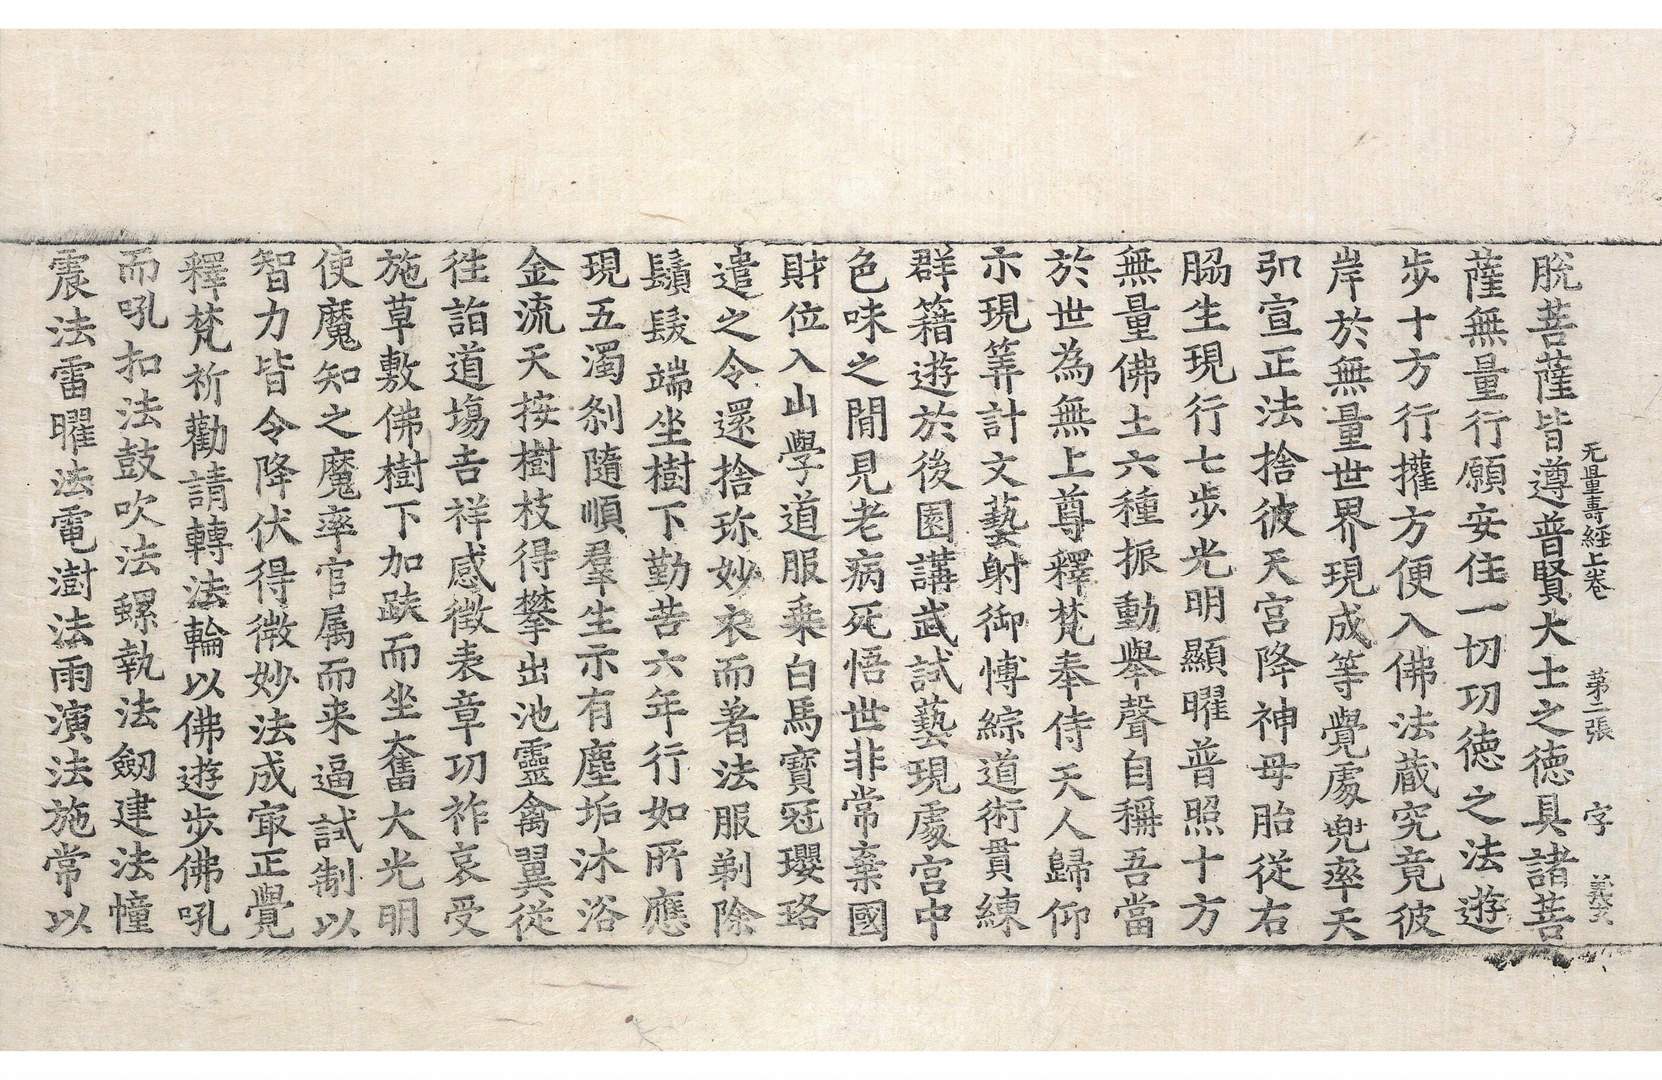 无量壽經上卷 第二張 字 義文
脫菩薩皆遵普賢大士之德具諸菩
薩無量行願安住一切功德之法遊
步十方行權方便入佛法藏究竟彼
岸於無量世界現成等覺處兜率天
弘宣正法捨彼天宮降神母胎從右
脇生現行七步光明顯曜普照十方
無量佛土六種振動舉聲自稱吾當
於世為無上尊釋梵奉侍天人歸仰
示現筭計文藝射御博綜道術貫練
群籍遊於後園講武試藝現處宮中
色味之間見老病死悟世非常棄國
財位入山學道服乘白馬寶冠瓔珞
遣之令還捨珎妙衣而著法服剃除
鬚髮端坐樹下勤苦六年行如所應
現五濁剎隨順羣生示有塵垢沐浴
金流天按樹枝得攀出池靈禽翼從
往詣道場吉祥感徵表章功祚哀受
施草敷佛樹下加趺而坐奮大光明
使魔知之魔率官属而来逼試制以
智力皆令降伏得微妙法成㝡正覺
釋梵祈勸請轉法輪以佛遊步佛吼
而吼扣法鼓吹法螺執法劒建法幢
震法雷曜法電澍法雨演法施常以